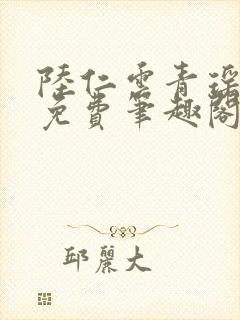 陸仁雲青瑤
免費筆趣閣
邱麗大